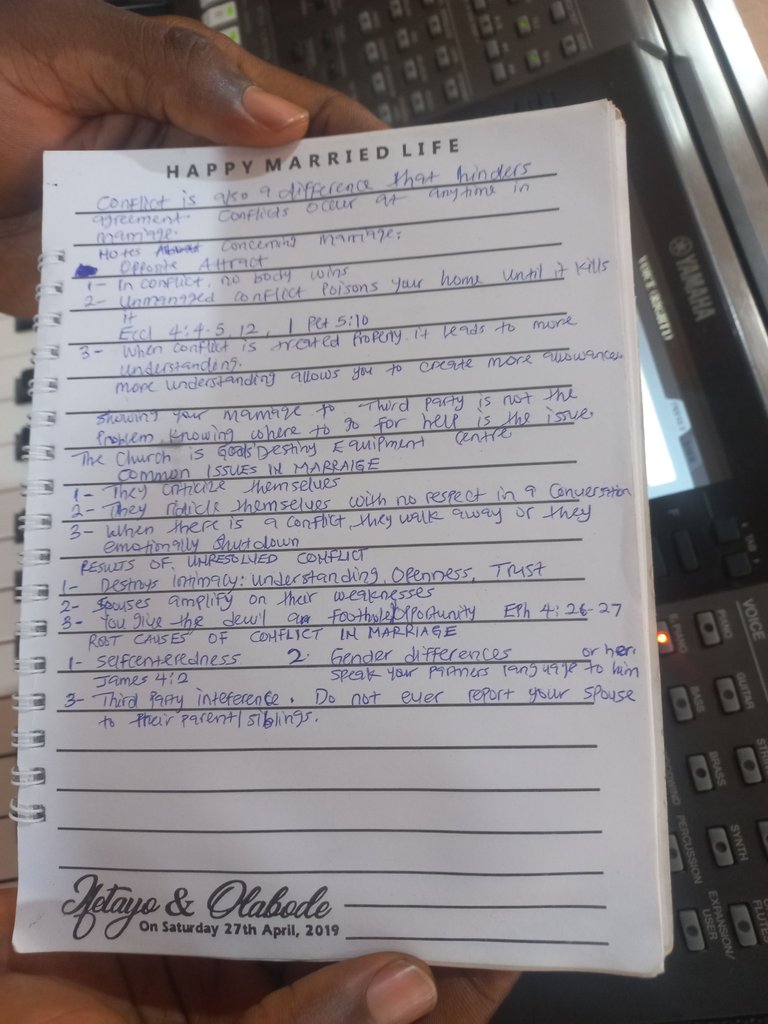 HAPPY MARRIED LIFE
Conflict is also a difference that hinders
agreement. Conflicts occur at anytime in
marriage.
Notes concerning marriage:
Opposite Attract
1- In conflict, no body wins
2- Unmanaged conflict poisons your home until it kills
it
Eccl 4:4-5, 12, 1 Pet 5:10
3- When conflict is treated properly it leads to more
understanding.
more understanding allows you to create more allowances
showing your marriage to third party is not the
problem, knowing where to go for help is the issue.
The Church is Gods Destiny Equipment Centre
COMMON ISSUES IN MARRAIGE
1- They criticize themselves
2- They ridicle themselves with no respect in a conversation
3- When there is a conflict, they walk away or they
emotionally shutdown
RESULTS OF UNRESOLVED CONFLICT
1- Destroys Intimacy: understanding, Openness, Trust
2- Spouses amplify on their weaknesses
3- You give the devil a foothole/Opportunity Eph 4:26-27
ROOT CAUSES OF CONFLICT IN MARRIAGE
1- Selfcenteredness 2. Gender differences or her.
James 4:2 speak your partners language to him
3- Third Party inteference. Do not ever report your spouse
to their parent/siblings.
Ifetayo & Olabode
On Saturday 27th April, 2019
YAMAHA
VOICE
PIANO
E.PIANO
GUITAR
BASS
BRASS
SYNTH
PERCUSSION
EXPANSION/
USER